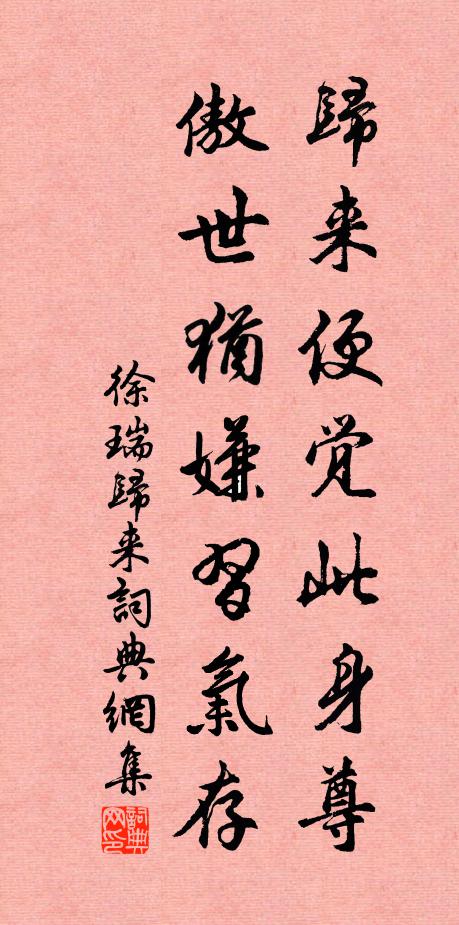 歸来便覺此身尊
傲世猶嫌習氣存
徐瑞歸来詞典網集
詞典網印